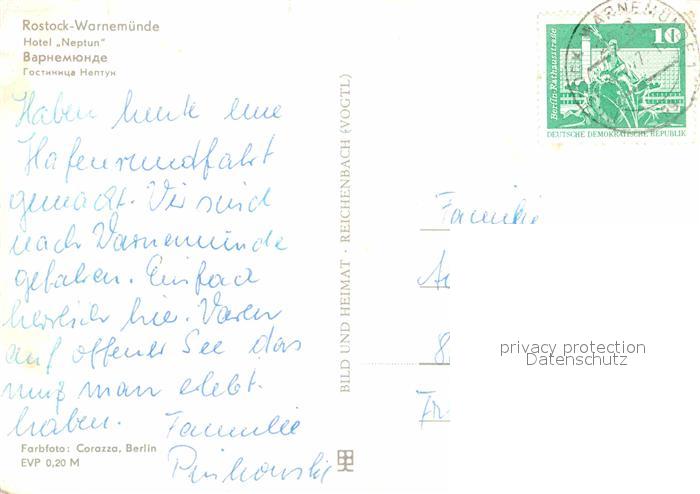 Rostock-Warnemünde
Hotel „Neptun"
Варнемюнде
Гостиница Нептун
Haben heute eine
Hafenrundfahrt
gemacht. Wir sind
nach Warnemünde
gefahren. Einfach
herrlich hier. Waren
auf offener See das
muß man erlebt
haben. Familie
Farbfoto: Corazza, Berlin
EVP 0,20 M
BILD UND HEIMAT · REICHENBACH (VOGTL)
Berlin·Rathausstraße
10
DEUTSCHE DEMOKRATISCHE REPUBLIK
WARNEMÜNDE 1
Familie
8
privacy protection
Datenschutz